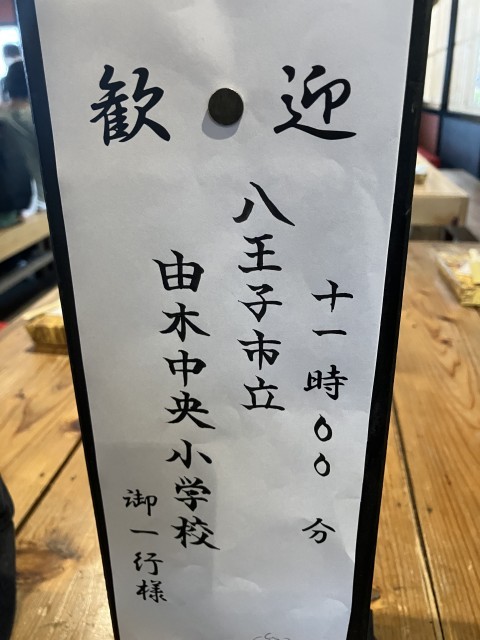 歓迎
十一時00分
八王子市立
由木中央小学校
御一行様